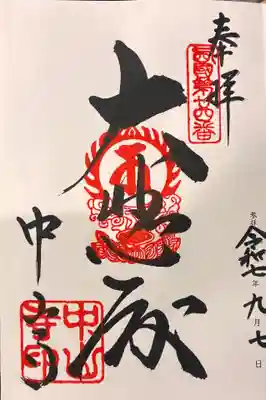 奉拝
西國第廿四番
令和七年九月七日
大悲殿
中山寺
中山寺印